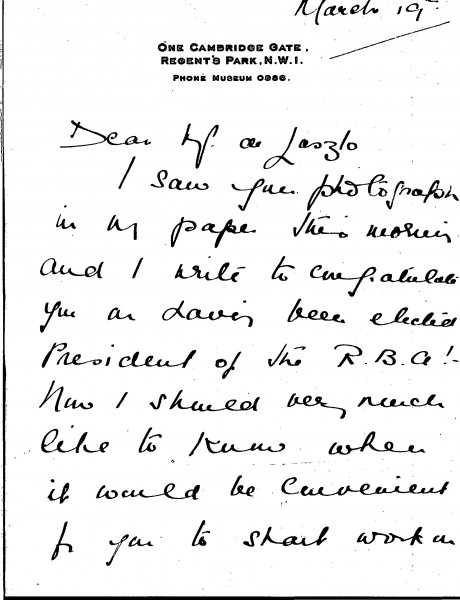 March 19
ONE CAMBRIDGE GATE,
REGENT'S PARK, N.W.1.
PHONE MUSEUM 0986.
Dear Mr. de Laszlo
I saw your photograph
in my paper this morning
and I write to congratulate
you on having been elected
President of the R.B.A!-
Now I should very much
like to know when
it would be convenient
for you to start work on